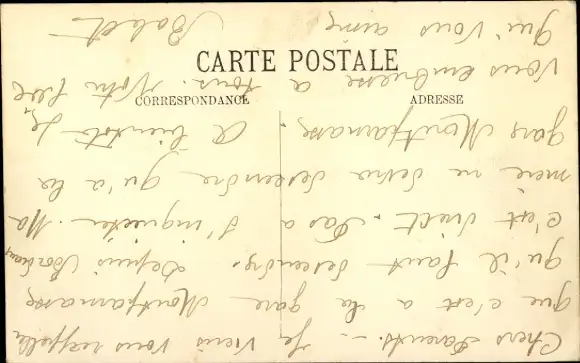 CARTE POSTALE
CORRESPONDANCE
ADRESSE
Chers Parents. – Je viens vous rappeller
que c'est a la gare Montparnasse
qu'il faut descendre. Depuis
c'est direct. Pas a s'inquieter. Ma
mère ne devra descendre qu'a la
gare Montparnasse. A bientôt
Vous embrasse a tous. Votre
qui vous aime